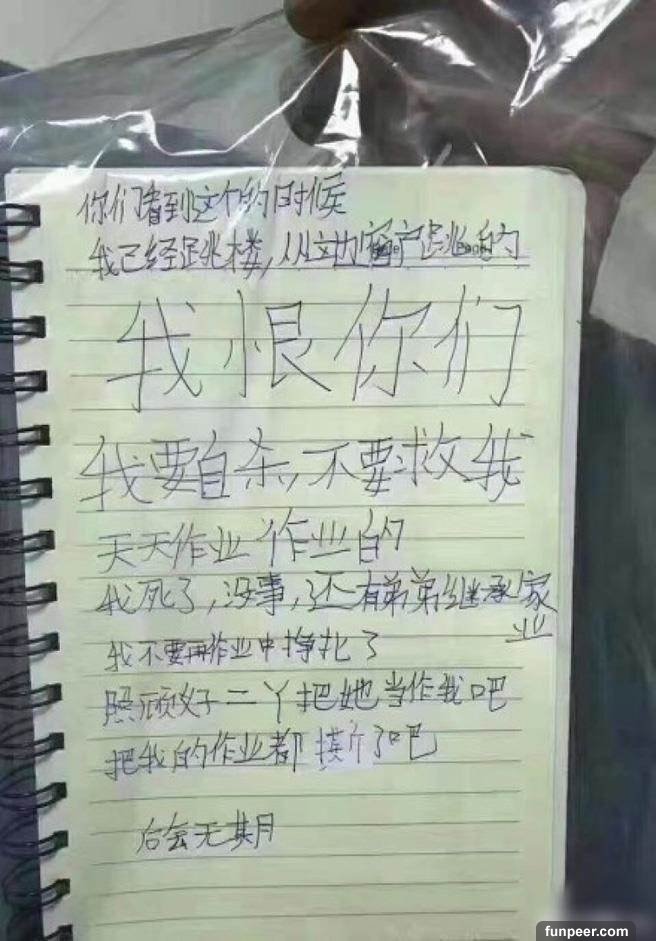 你们看到这个的时候
我已经跳楼,从这边窗户跳的
我恨你们
我要自杀,不要救我
天天作业作业的
我死了,没事,还有弟弟继承家
业
我不要再作业中挣扎了
照顾好二丫把她当作我吧
把我的作业都撕了吧
后会无期
funpeer.com